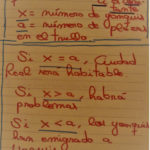 x = número de yonquis
a = número de plazas
en el trullo
Si x = a, Ciudad
Real será habitable
Si x > a, habrá
problemas
Si x < a, los yonquis
han emigrado a